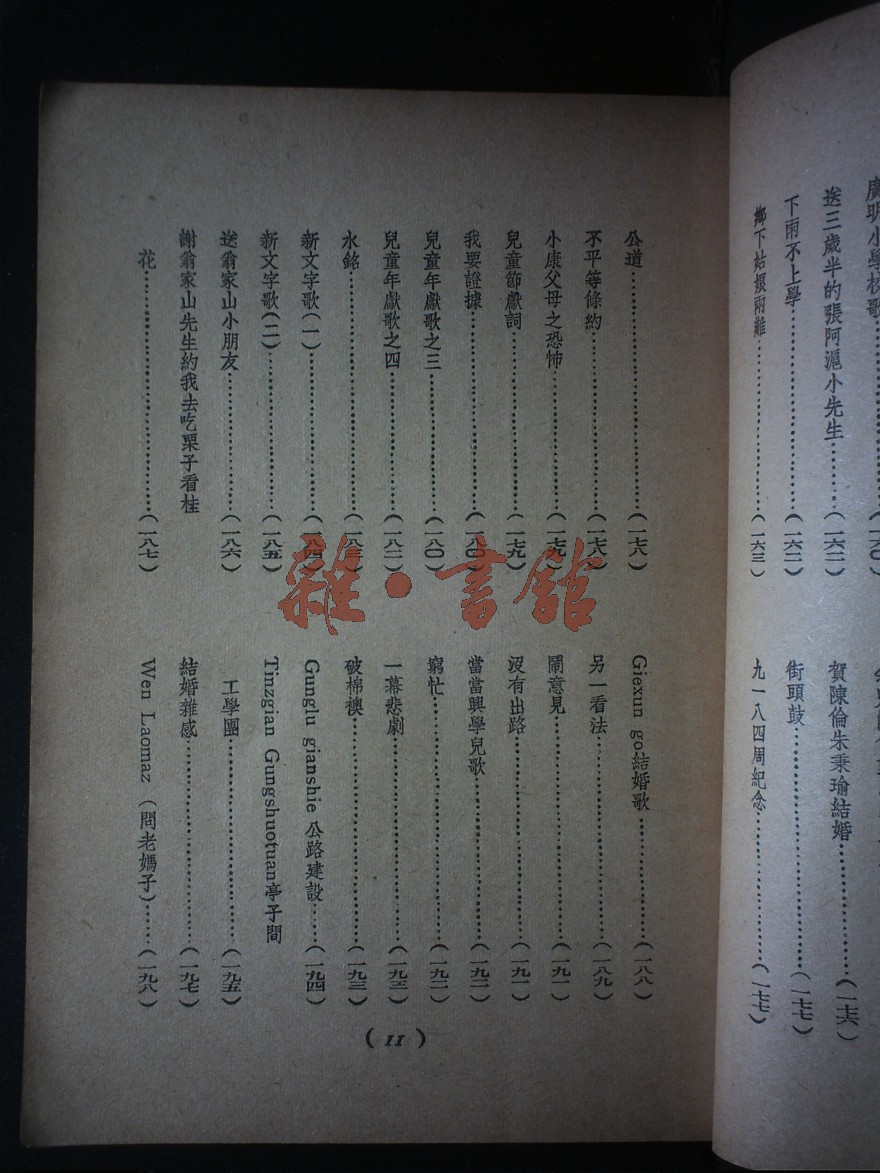 廣明小學校歌……(一六〇)
送三歲半的張阿滬小先生……(一六二)
下雨不上學……(一六二)
鄉下姑娘兩難……(一六三)
賀陳倫朱秉瑜結婚……(一七六)
街頭鼓……(一七七)
九一八四周紀念……(一七七)
公道……(一七八)
不平等條約……(一七八)
小康父母之恐怖……(一七九)
兒童節獻詞……(一七九)
我要證據……(一八〇)
兒童年獻歌之三……(一八〇)
兒童年獻歌之四……(一八二)
水銘……(一八三)
新文字歌(一)……(一八四)
新文字歌(二)……(一八五)
送翁家山小朋友……(一八六)
謝翁家山先生約我去吃栗子看桂
花……(一八七)
Giexun go結婚歌……(一八八)
另一看法……(一八九)
鬧意見……(一九一)
沒有出路……(一九一)
當當興學兒歌……(一九二)
窮忙……(一九二)
一幕悲劇……(一九三)
破棉襖……(一九三)
Gunglu gianshie 公路建設……(一九四)
Tinzgian Gungshuotuan亭子間
工學團……(一九五)
結婚雜感……(一九七)
Wen Laomaz (問老媽子)……(一九八)
(11)
雜·書館